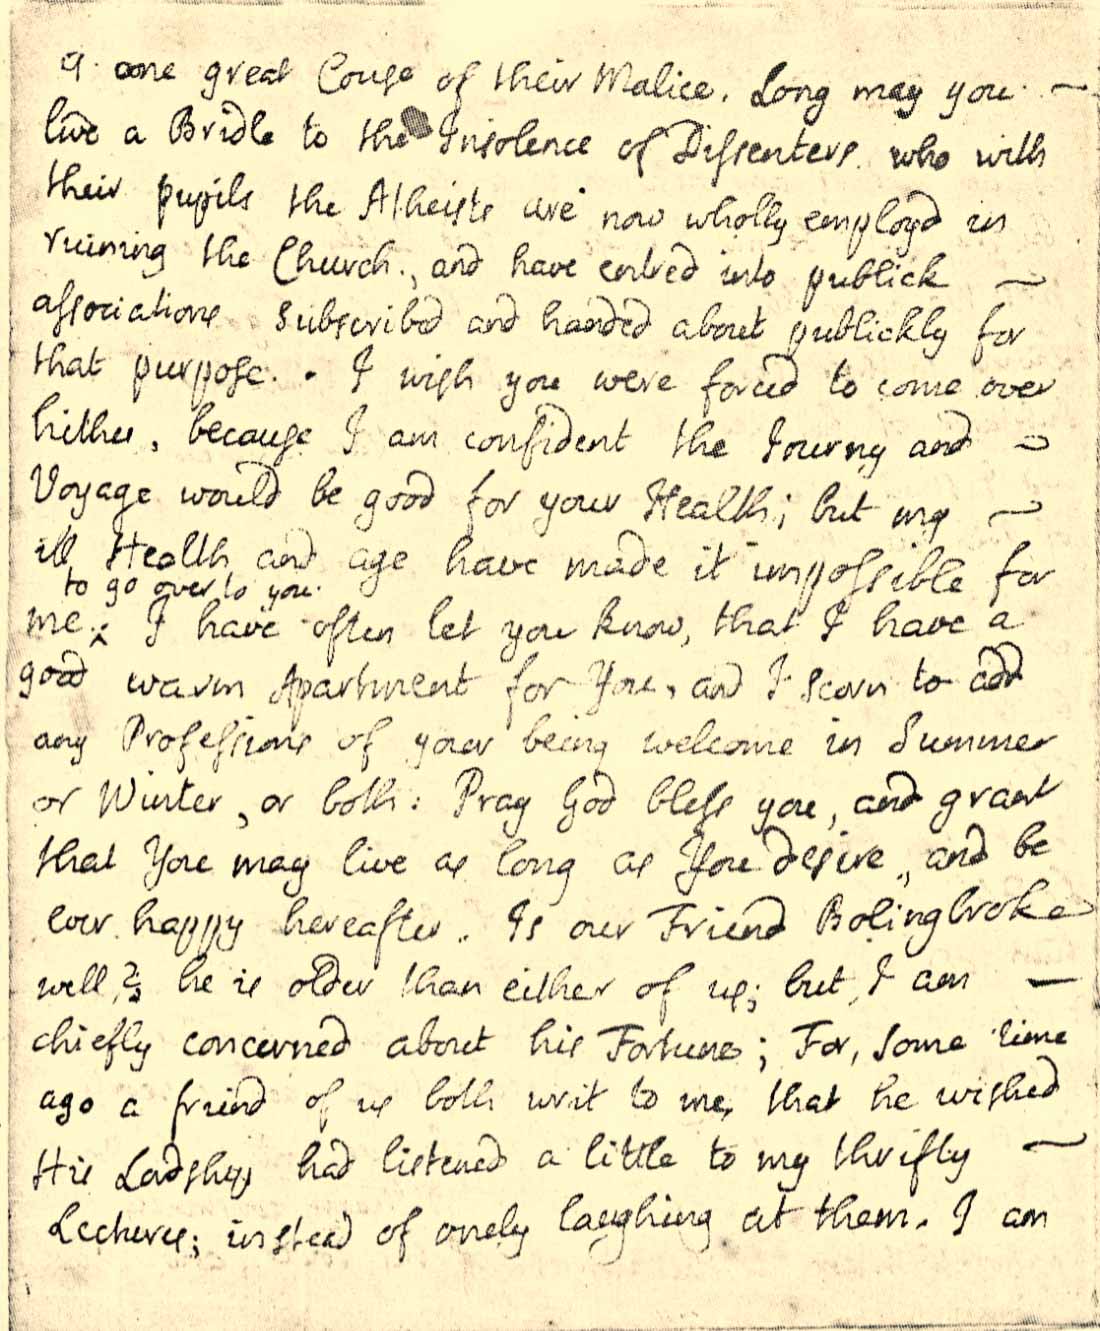 a one great Cause of their Malice. Long may you —
live a Bridle to the Insolence of Dissenters who with
their pupils the Atheists are now wholly employd in
ruining the Church, and have entred into publick —
associations subscribed and handed about publickly for
that purpose. . I wish you were forced to come over
hither, because I am confident the Journy and —
Voyage would be good for your Health; but my —
ill Health and age have made it impossible for
to go over to you.
me. ^ I have often let you know, that I have a
good warm Apartment for You, and I scorn to add
any Professions of your being welcome in Summer
or Winter, or both: Pray God bless you, and grant
that You may live as long as You desire, and be
ever happy hereafter. Is our Friend Bolingbroke
well?; he is older than either of us; but, I am —
chiefly concerned about his Fortune; For, some time
ago a friend of us both writ to me, that he wished
His Lordship had listened a little to my thrifty —
Lectures; instead of onely laughing at them. I am